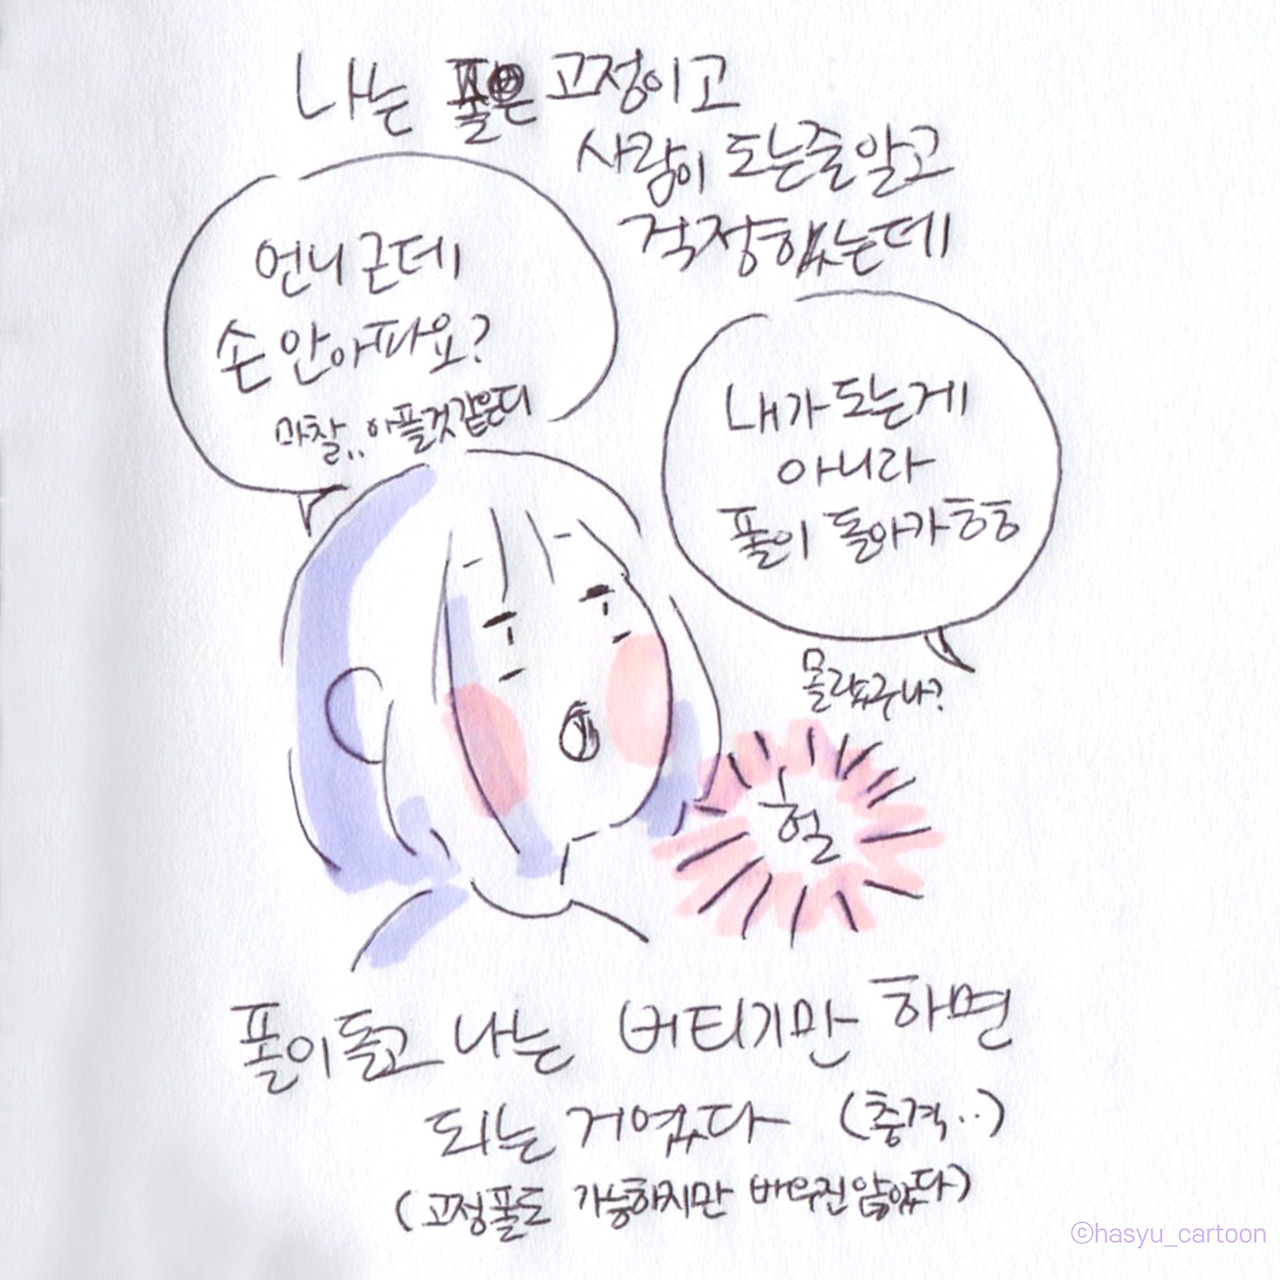 나는 폴은 고정이고
사람이 도는줄알고
걱정했는데
언니 근데
손 안아파요?
마찰.. 아플것같은디
내가 도는게
아니라
폴이 돌아가ㅎㅎ
몰랐구나?
헐
폴이돌고 나는 버티기만 하면
되는 거였다 (충격..)
(고정폴도 가능하지만 배우진않았다)
©hasyu_cartoon